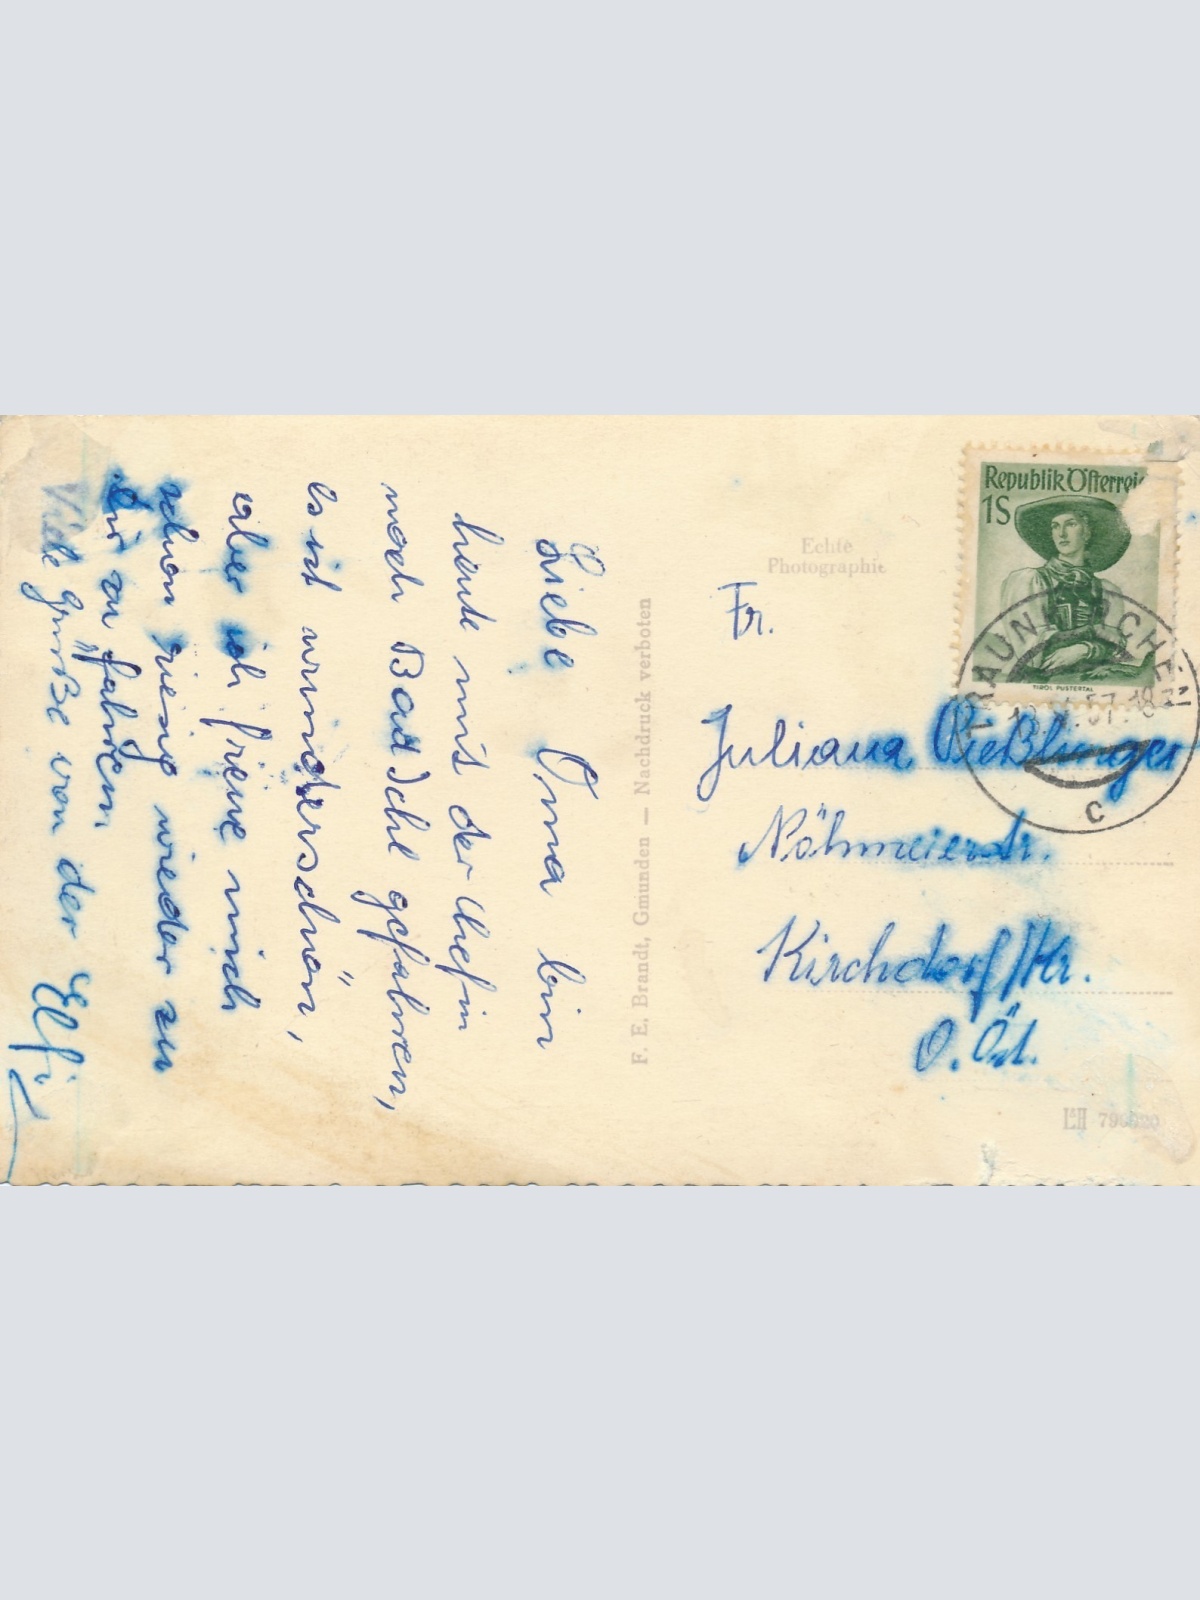 Liebe Oma bin
heute mit der Chefin
nach Bad Ischl gefahren,
es ist wunderschön,
aber ich freue mich
schon riesig wieder zu
Dir zu fahren.
Viele Grüße von der Elfi
F. E. Brandt, Gmunden — Nachdruck verboten
Echte
Photographie
Republik Österrei
1S
TIROL PUSTERTAL
TRAUNKIRCHEN
57.18
c
Fr.
Juliana Pießlinger
Nöhmeierstr.
Kirchdorf/Kr.
O. Öst.